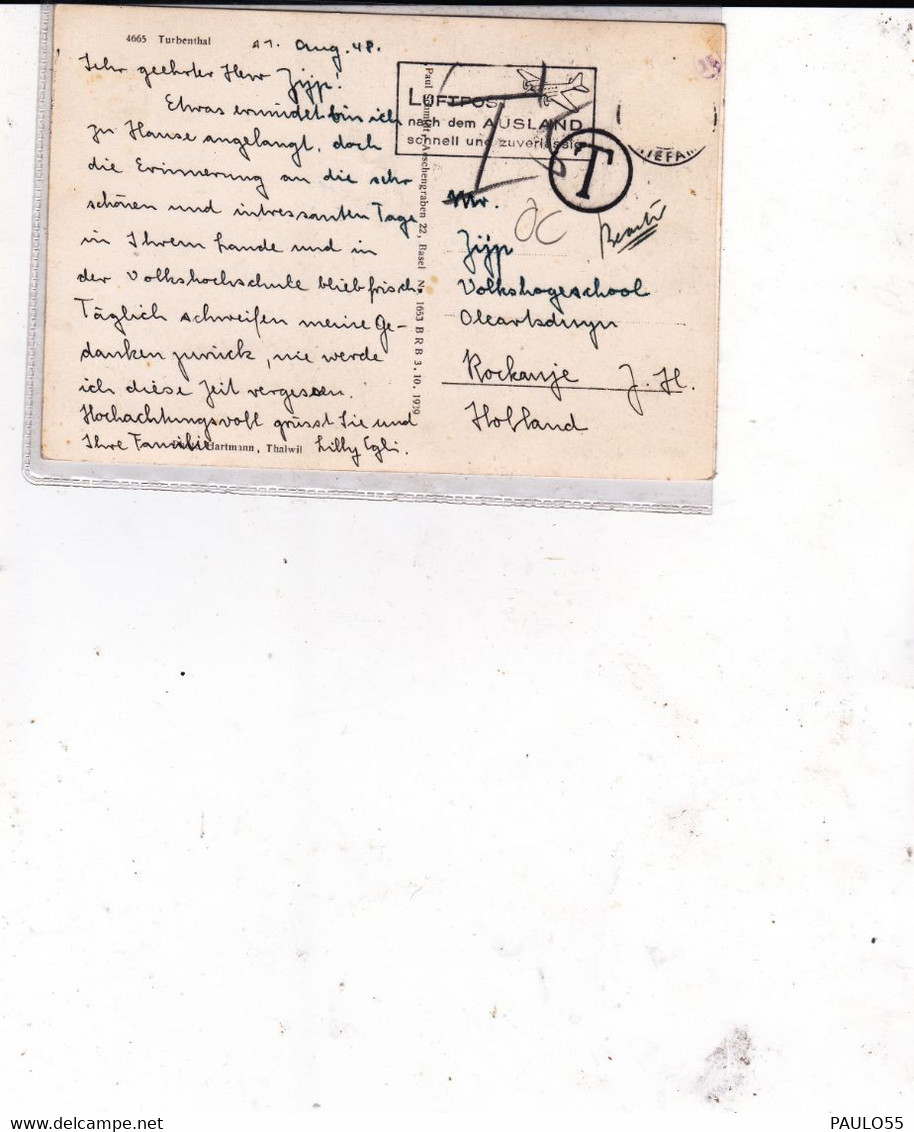 4665 Turbenthal
21. Aug. 48.
Sehr geehrter Herr Zijp!
Etwas ermüdet bin ich
zu Hause angelangt, doch
die Erinnerung an die sehr
schönen und intressanten Tage
in Ihrem Lande und in
der Volkshochschule blieb frisch.
Täglich schweifen meine Ge-
danken zurück, nie werde
ich diese Zeit vergessen.
Hochachtungsvoll grüsst Sie und
Ihre Familie Lilly Egli.
Hartmann, Thalwil
Paul Schmidt, Aeschengraben 22, Basel Nr. 1653 B R B 3. 10. 1939
LUFTPOST
nach dem AUSLAND
schnell und zuverlässig
T
T
Mr.
Zijp
Volkshogeschool
Rockanje Z. H.
Holland
PAULO55